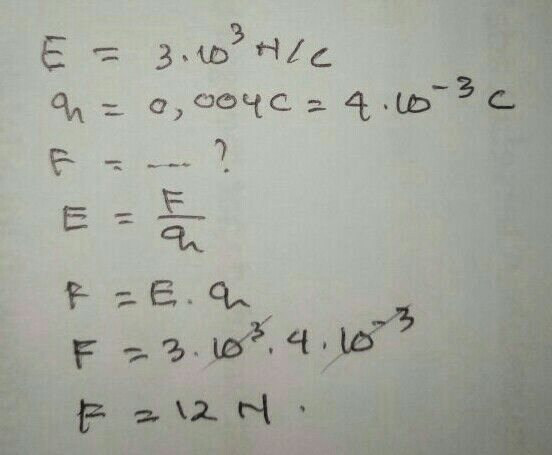 E = 3.10³ N/C
q = 0,004C = 4.10⁻³ C
F = --- ?
E = F/q
F = E.q
F = 3.10³.4.10⁻³
F = 12 N.